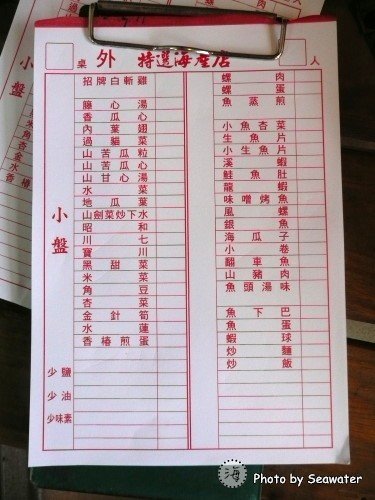 桌 外 特選海產店 人
招牌白斬雞
藤心湯
香瓜心
內葉翅
過貓菜
山苦瓜粒
山苦瓜心
山甘心湯
水菜
地瓜葉
山劍菜炒下水
昭和
川七
寶川
黑甜菜
米菜
角豆
杏菜
金針筍
水蓮
香椿煎蛋
小盤
少鹽
少油
少味素
螺肉
螺蛋
魚蒸煎
小魚杏菜
生魚片
小生魚片
溪蝦
鮭魚肚
龍蝦
味噌烤魚
風螺
銀魚
海瓜子
小卷
翻車魚
山豬肉
魚頭湯味
魚下巴
魚蛋
蝦球
炒麵
炒飯
小盤
海
Photo by Seawater